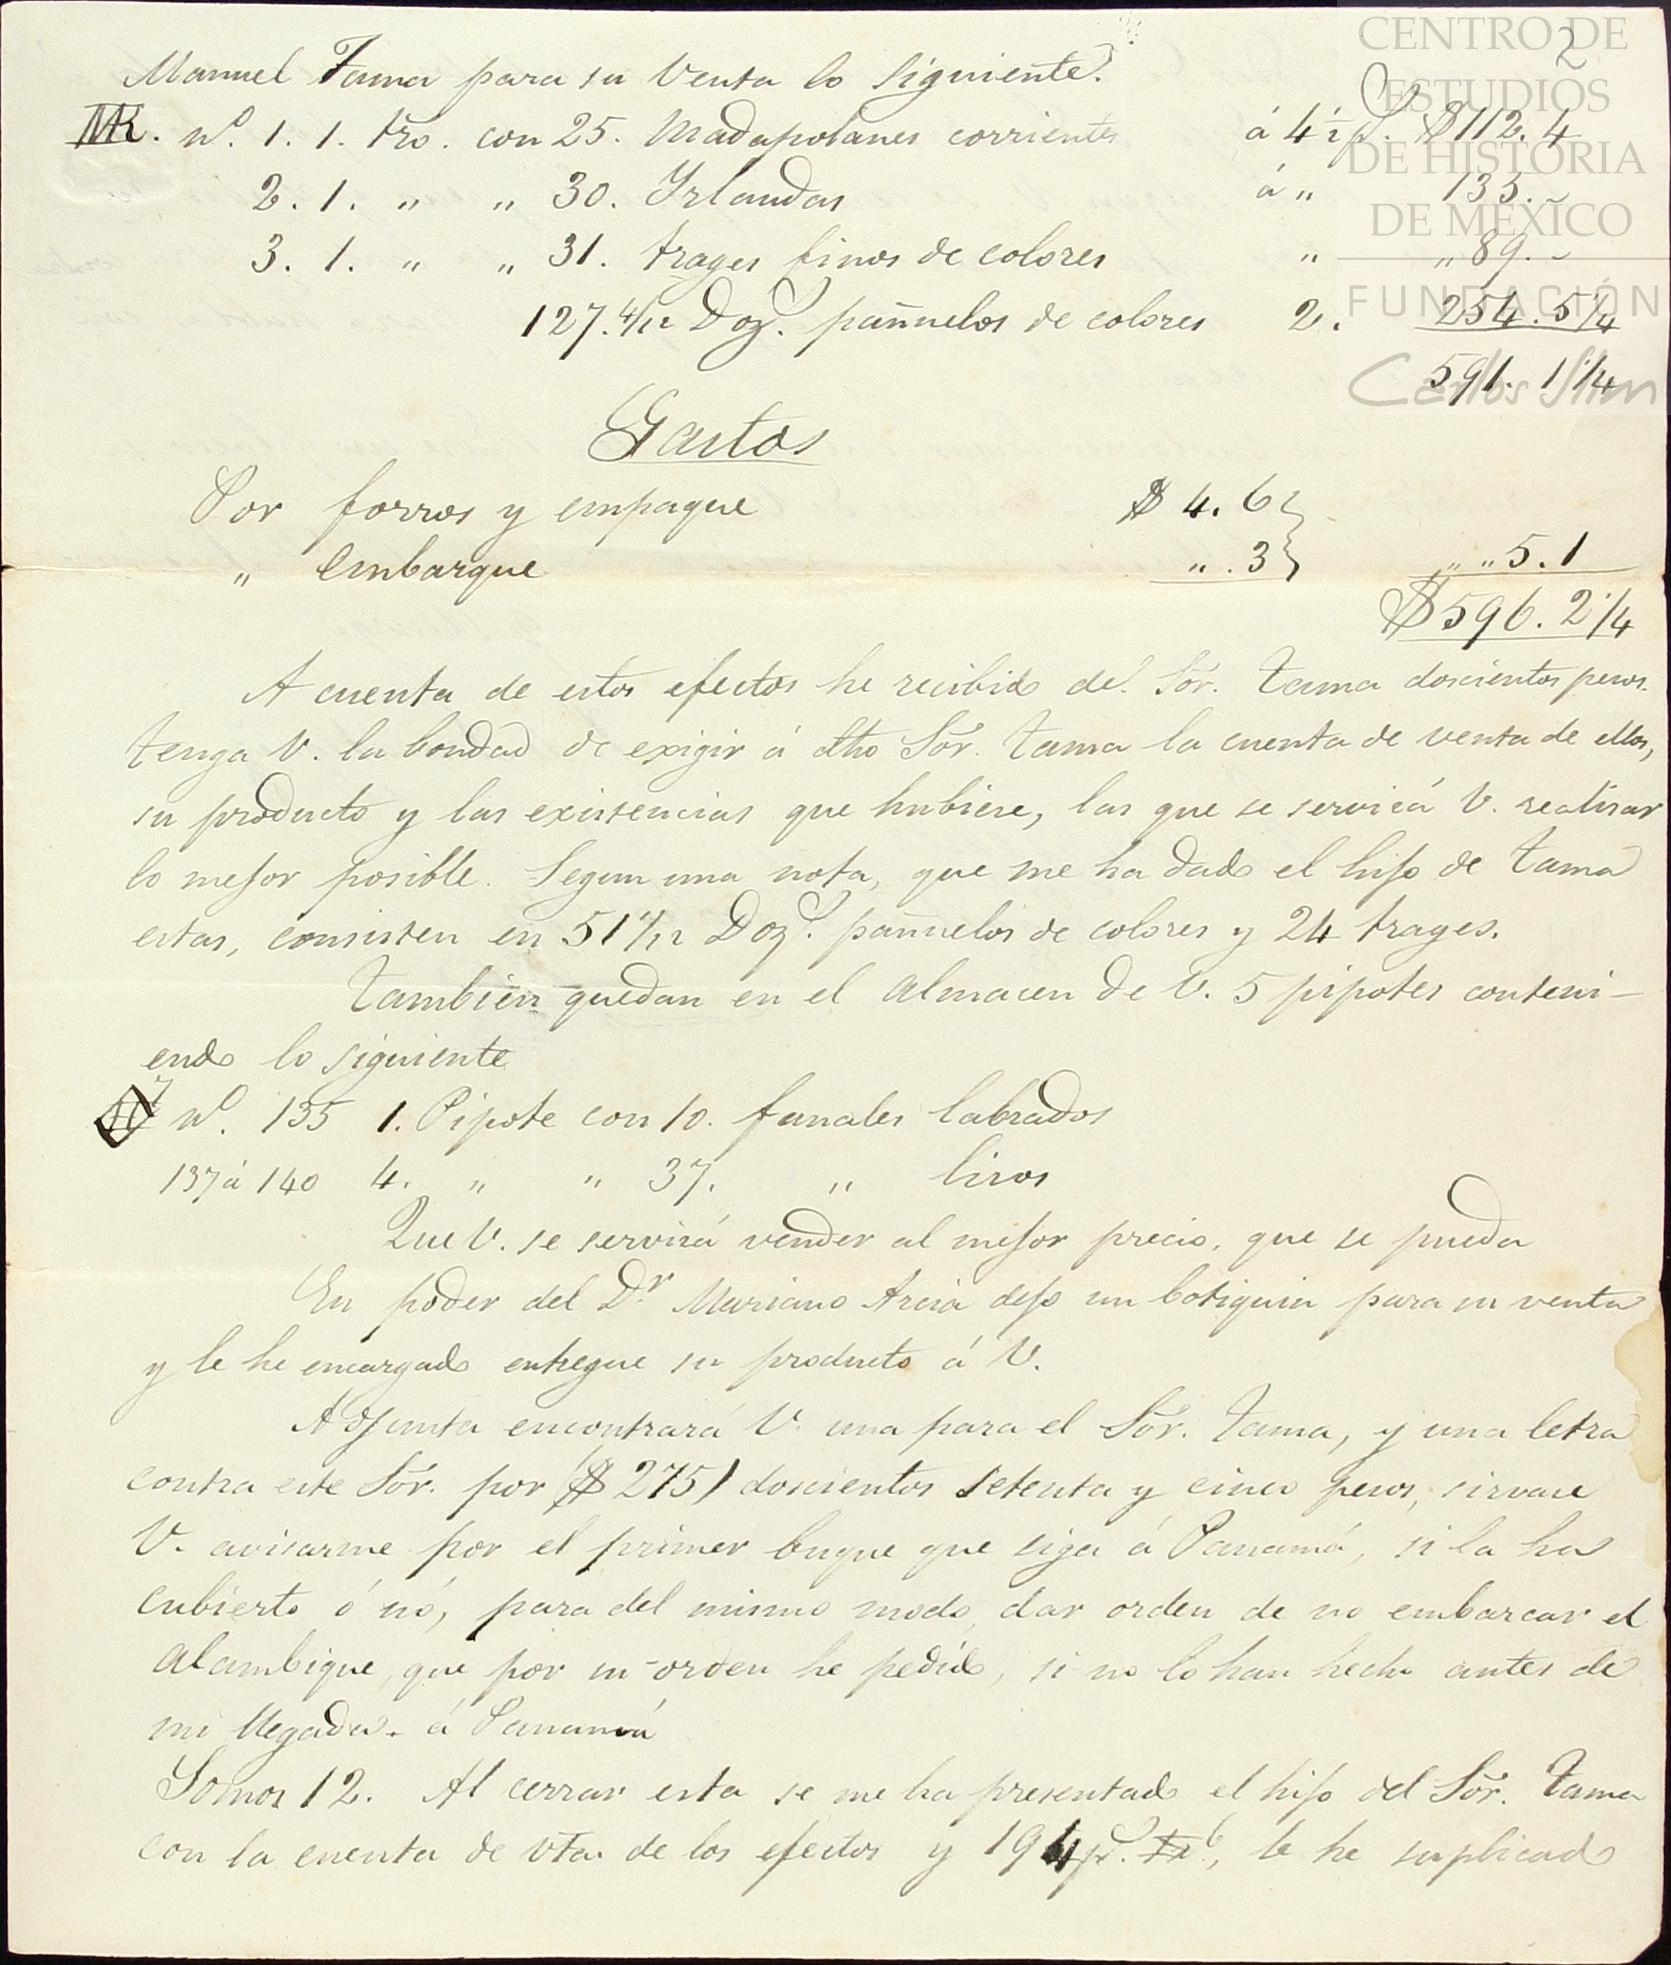 2
CENTRO DE
ESTUDIOS
DE HISTORIA
DE MÉXICO
FUNDACIÓN
Carlos Slim
Manuel Tama para su venta lo siguiente.
MR. nº. 1. 1. tro. con 25. Madapolanes corrientes á 4½ p.s $112. 4
2. 1. " " 30. Irlandas á " 135. ~
3. 1. " " 31. trages finos de colores " " 89. ~
127.4/12 Doz.s pañuelos de colores 2. 254. 5 1/4
591. 1 1/4
Gastos
Por forros y empaque $ 4. 6
" embarque " . 3 " " 5. 1
$596. 2 1/4
A cuenta de estos efectos he recibido del Sor. Tama doscientos pesos.
tenga V. la bondad de exigir á dho Sor. Tama la cuenta de venta de ellos,
su producto y las existencias que hubiere, las que se servirá V. realisar
lo mejor posible. Segun una nota, que me ha dado el hijo de Tama
estas, consisten en 51 /12 Doz.s pañuelos de colores y 24 trages.
Tambien quedan en el almacen de V. 5 pipotes conteni-
endo lo siguiente
nº. 135 1. Pipote con 10. fanales labrados
137 á 140 4. " " 37. " lisos
Que V. se servirá vender al mejor precio, que se pueda
En poder del Dr. Mariano Arcia dejo un botiquin para su venta
y le he encargado entregue su producto á V.
Adjunta encontrará V. una para el Sor. Tama, y una letra
contra este Sor. por ($ 275) doscientos setenta y cinco pesos, sirvase
V. avisarme por el primer buque que siga á Panamá, si la ha
cubierto ó nó, para del mismo modo, dar orden de no embarcar el
alambique, que por su orden he pedido, si no lo han hecho antes de
mi llegada. á Panamá
Somos 12. Al cerrar esta se me ha presentado el hijo del Sor. Tama
con la cuenta de vta. de los efectos y 194 p.s, le he suplicado